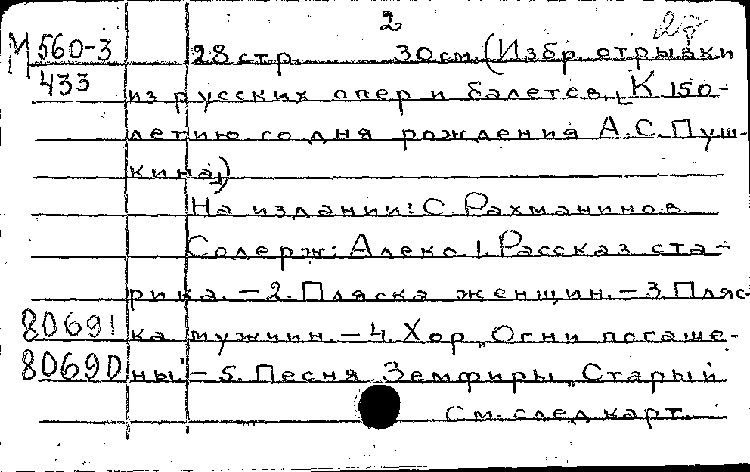 2
М 560-3 28 стр. 30 см. (Избр. отрывки
433 из русских опер и балетов. К 150-
летию со дня рождения А.С. Пуш-
кина.)
На издании: С. Рахманинов
Содерж: Алеко 1. Рассказ ста-
рика. – 2. Пляска женщин. – 3. Пляс-
80691 ка мужчин. – 4. Хор „Огни погаше-
80690 ны" – 5. Песня Земфиры „Старый
См. след карт.